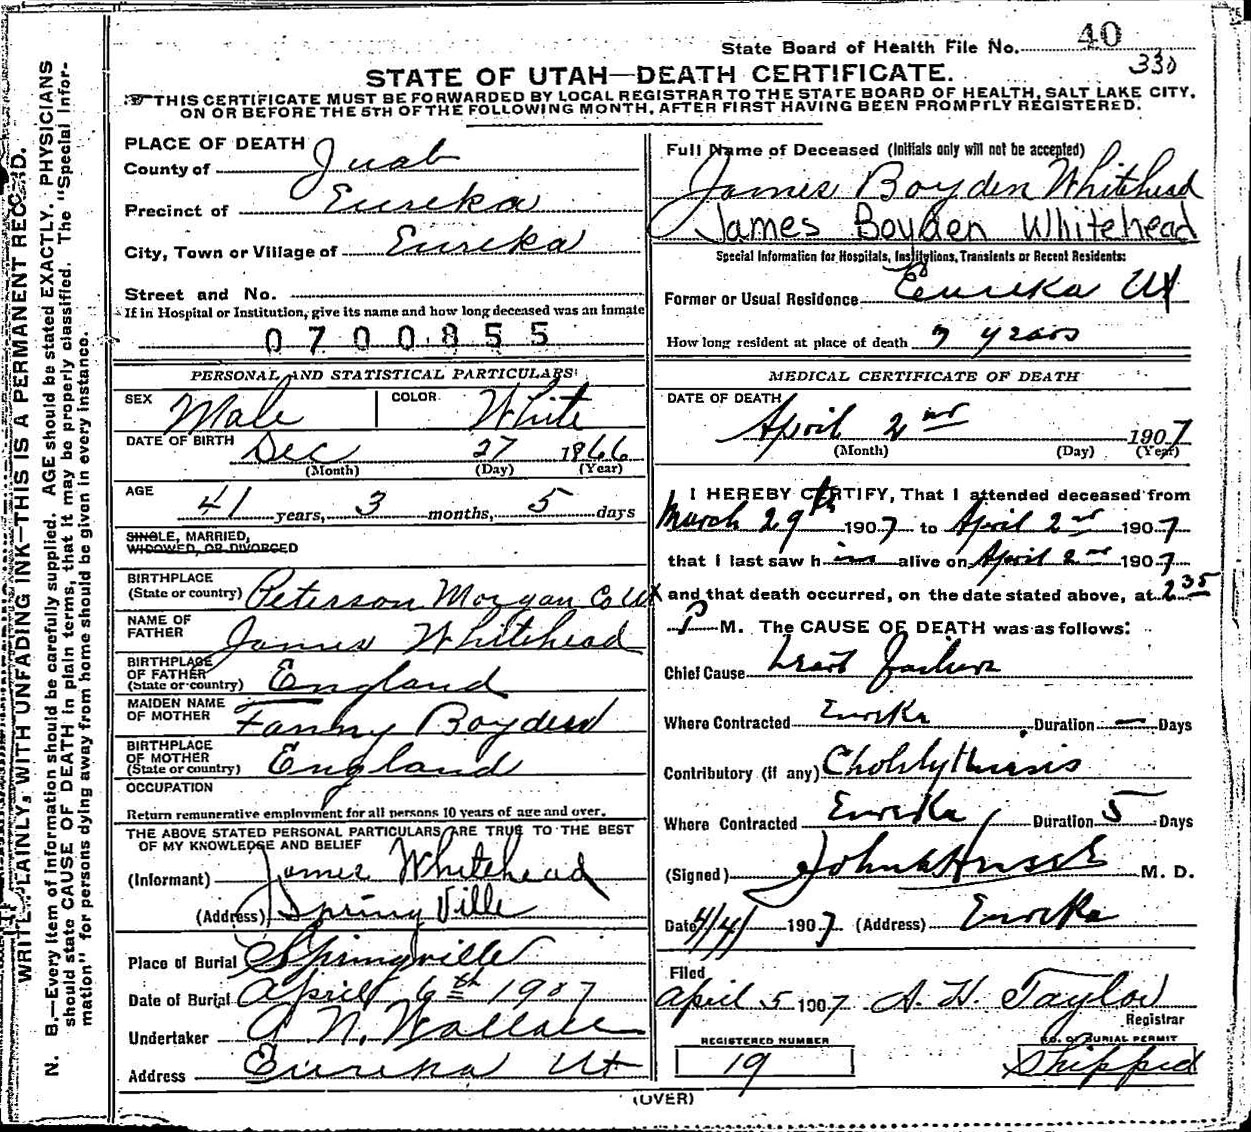 State Board of Health File No. 40
330
STATE OF UTAH—DEATH CERTIFICATE.
THIS CERTIFICATE MUST BE FORWARDED BY LOCAL REGISTRAR TO THE STATE BOARD OF HEALTH, SALT LAKE CITY,
ON OR BEFORE THE 5TH OF THE FOLLOWING MONTH, AFTER FIRST HAVING BEEN PROMPTLY REGISTERED.
WRITE PLAINLY, WITH UNFADING INK—THIS IS A PERMANENT RECORD.
N. B.—Every item of information should be carefully supplied. AGE should be stated EXACTLY. PHYSICIANS
should state CAUSE OF DEATH in plain terms, that it may be properly classified. The "Special Infor-
mation" for persons dying away from home should be given in every instance.
PLACE OF DEATH
County of Juab
Precinct of Eureka
City, Town or Village of Eureka
Street and No.
If in Hospital or Institution, give its name and how long deceased was an inmate
0700855
PERSONAL AND STATISTICAL PARTICULARS
SEX Male COLOR White
DATE OF BIRTH Dec 27 1866
(Month) (Day) (Year)
AGE
41 years, 3 months, 5 days
SINGLE, MARRIED,
WIDOWED, OR DIVORCED
BIRTHPLACE
(State or country) Peterson Morgan Co Ut
NAME OF
FATHER James Whitehead
BIRTHPLACE
OF FATHER
(State or country) England
MAIDEN NAME
OF MOTHER Fanny Boyden
BIRTHPLACE
OF MOTHER
(State or country) England
OCCUPATION
Return remunerative employment for all persons 10 years of age and over.
THE ABOVE STATED PERSONAL PARTICULARS ARE TRUE TO THE BEST
OF MY KNOWLEDGE AND BELIEF
(Informant) James Whitehead
(Address) Spring Ville
Place of Burial Springville
Date of Burial April 6th 1907
Undertaker A. N. Wallace
Address Eureka Ut
Full Name of Deceased (Initials only will not be accepted)
James Boyden Whitehead
James Boyden Whitehead
Special Information for Hospitals, Institutions, Transients or Recent Residents:
Former or Usual Residence Eureka Ut
How long resident at place of death 7 years
MEDICAL CERTIFICATE OF DEATH
DATE OF DEATH
April 2nd 1907
(Month) (Day) (Year)
I HEREBY CERTIFY, That I attended deceased from
March 29th 1907 to April 2nd 1907
that I last saw him alive on April 2nd 1907
and that death occurred, on the date stated above, at 2 35
P M. The CAUSE OF DEATH was as follows:
Chief Cause heart failure
Where Contracted Eureka Duration — Days
Contributory (if any)
Where Contracted Eureka Duration 5 Days
(Signed) M. D.
Date 4/4/ 1907 (Address) Eureka
Filed
April 5 1907 A. H. Taylor
Registrar
REGISTERED NUMBER
19
NO. OF BURIAL PERMIT
Shipped
(OVER)